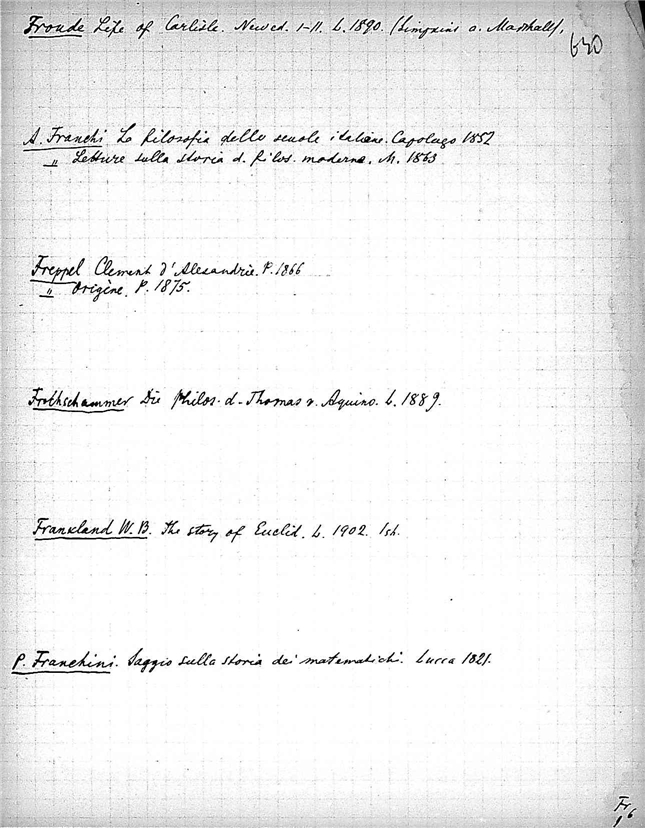 Froude Life of Carlisle. New ed. I-II. L. 1890. (Simpkins a. Marshall).
630
A. Franchi La filosofia delle scuole italiane. Capolago 1852
" Letture sulla storia d. filos. moderna. M. 1863
Freppel Clement d'Alexandrie. P. 1866
" Origène. P. 1875.
Frohschammer Die Philos. d. Thomas v. Aquino. L. 1889.
Frankland W.B. The story of Euclid. L. 1902. 1sh.
P. Franchini. Saggio sulla storia dei matematichi. Lucca 1821.
Fr